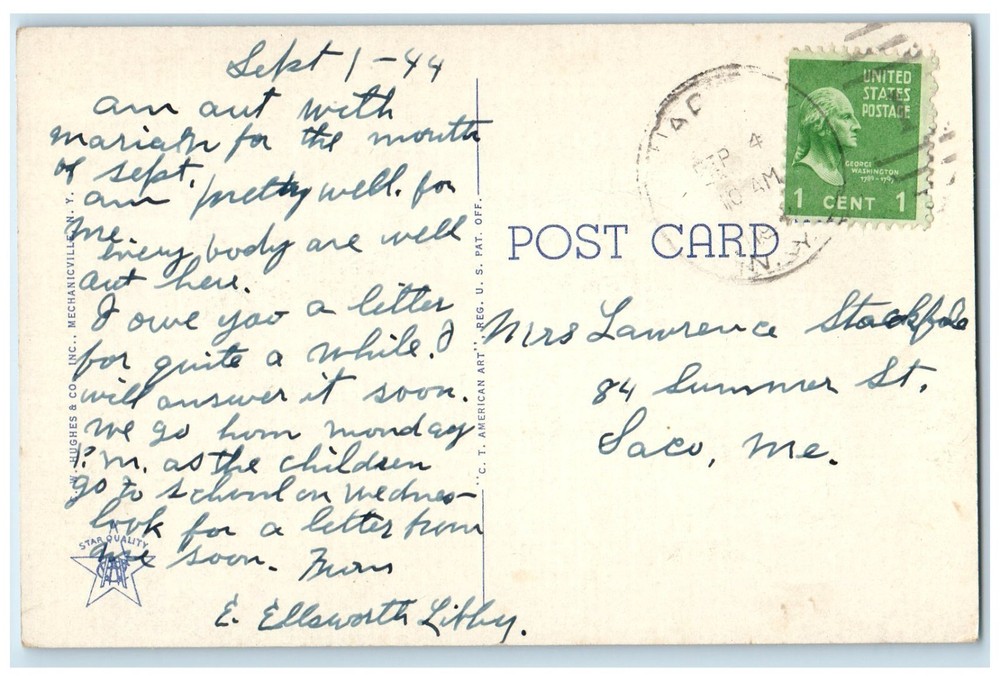 Sept 1 - 44
am out with
for the month
of Sept.
am pretty well. for
me.
every body are well
out here.
I owe you a letter
for quite a while. I
will answer it soon.
we go hom monday
P. m. as the children
go to school on wednes-
look for a letter from
me soon. From
E. Ellsworth Libby.
HUGHES & CO., INC., MECHANICVILLE, N. Y.
STAR QUALITY
"C. T. AMERICAN ART" REG. U. S. PAT. OFF.
POST CARD
UNITED
STATES
POSTAGE
GEORGE
WASHINGTON
1 CENT 1
4
10 AM
N.Y.
Mrs Lawrence
84 Summer St.
Saco, Me.